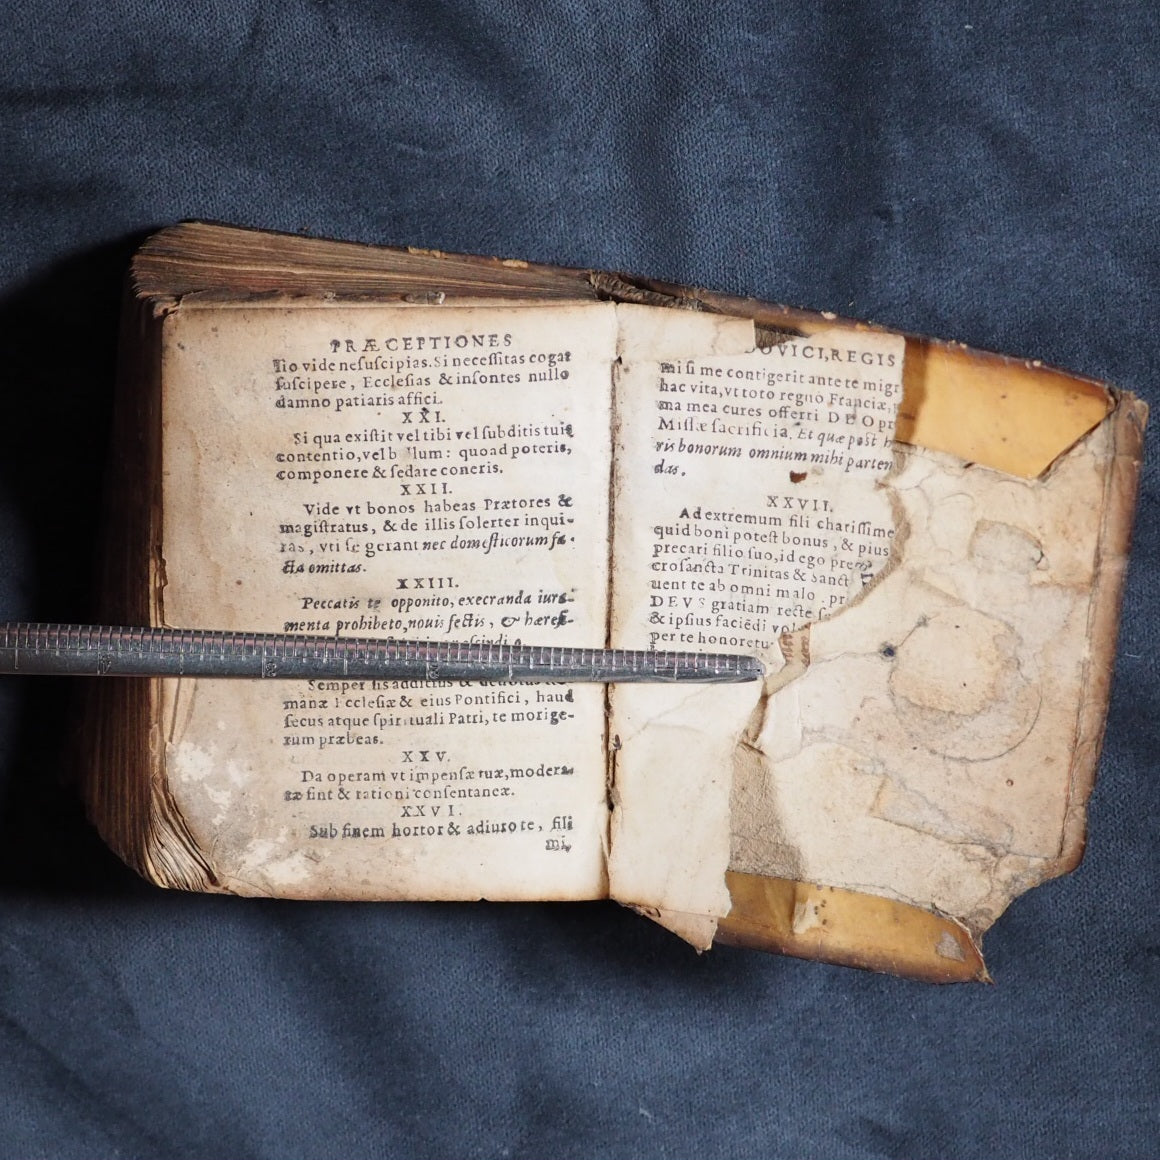 PRÆCEPTIONES
lio vide ne suſcipias. Si neceſſitas cogat
ſuſcipere, Eccleſias & inſontes nullo
damno patiaris affici.
XXI.
Si qua exiſtit vel tibi vel ſubditis tuis
contentio, vel b llum: quoad poteris,
componere & ſedare coneris.
XXII.
Vide vt bonos habeas Prætores &
magiſtratus, & de illis ſolerter inqui-
ras, vti ſe gerant nec domeſticorum fa-
cta omittas.
XXIII.
Peccatis te opponito, execranda iura-
menta prohibeto, nouis ſectis, & hæreſ-
Semper ſis addictus & deuotus
manæ Eccleſiæ & eius Pontifici, haud
ſecus atque ſpirituali Patri, te morige-
rum præbeas.
XXV.
Da operam vt impenſæ tuæ, modera-
tæ ſint & rationi conſentaneæ.
XXVI.
Sub finem hortor & adiuro te, fili
mi,
DOVICI, REGIS
mi ſi me contigerit ante te migr
hac vita, vt toto regno Franciæ,
ma mea cures offerri DEO pr
Miſſæ ſacrificia. Et quæ poſt h
ris bonorum omnium mihi parten
das.
XXVII.
Ad extremum fili chariſſime
quid boni poteſt bonus, & pius
precari filio ſuo, id ego prec
croſancta Trinitas & Sanct
uent te ab omni malo pr
DEVS gratiam recte
& ipſius faciēdi vol
per te honoretu